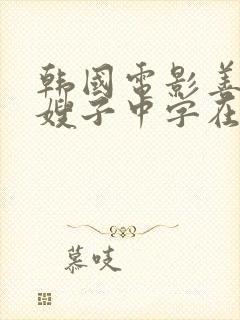 韩国电影善
嫂子中字在
慕吱